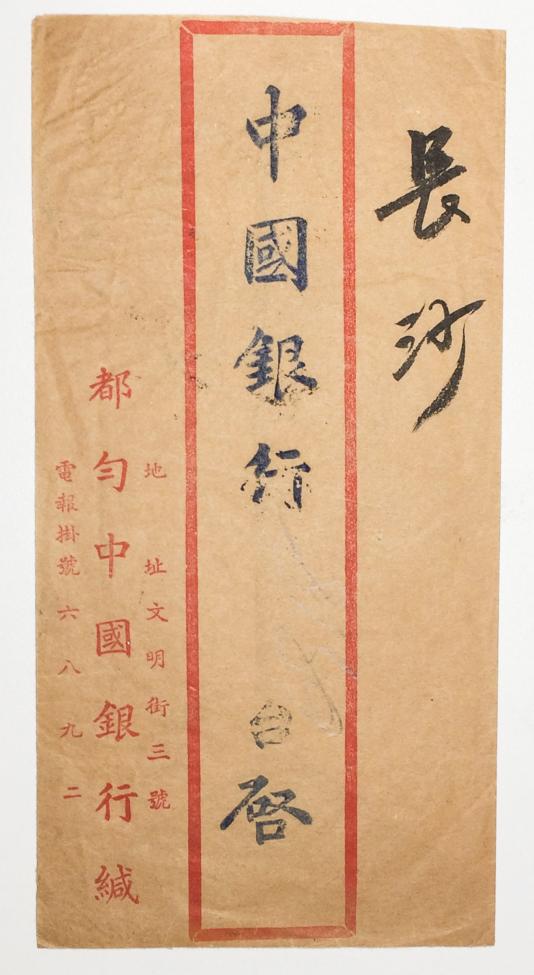 長沙
中國銀行 台啓
地址文明街三號
都勻中國銀行緘
電報掛號六八九二